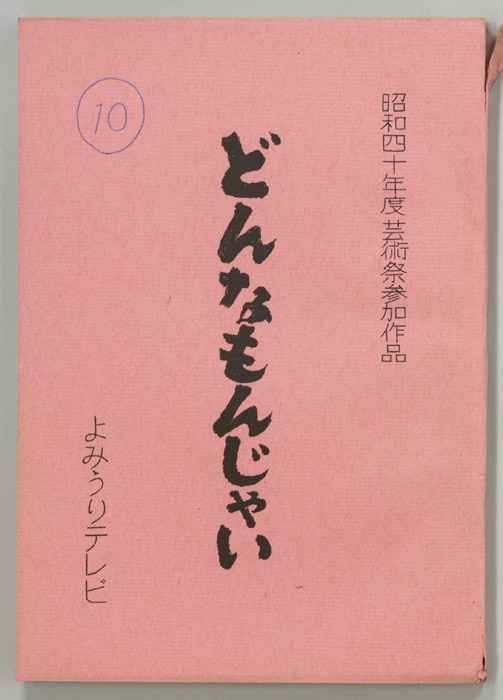 昭和四十年度芸術祭参加作品
どんなもんじゃい
10
よみうりテレビ